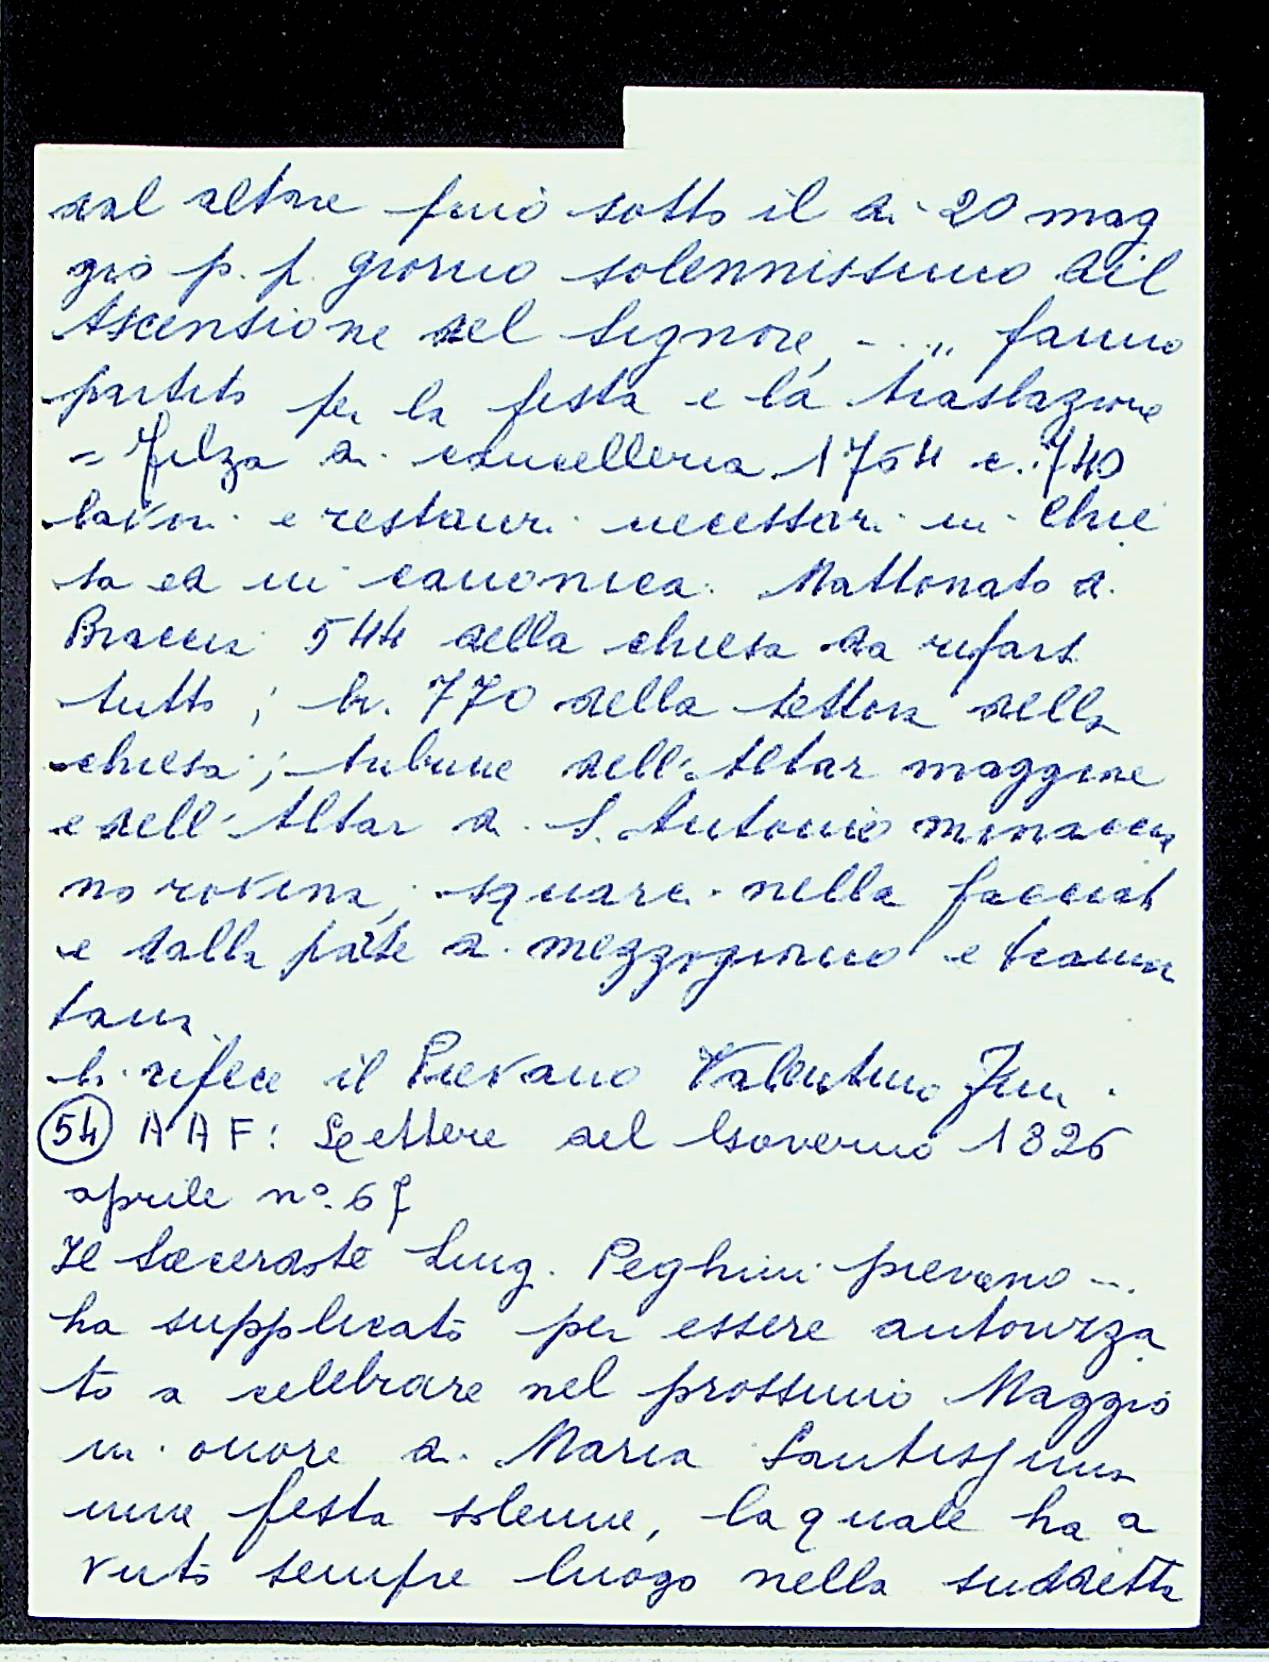 dal altare finò sotto il di 20 mag
gio p. p. giorno solennissimo dell
Ascensione del Signore, - .. „ fanno
partito per la festa e la traslazione
= Filza di cancelleria 1764 c. 740
lavori e restauri necessari in Chie
sa ed in canonica. Mattonato di
Braccia 544 della chiesa da rifarsi
tutto; br. 770 della tettoia della
chiesa; tribune dell'Altar maggiore
e dell'Altar di S. Antonio minaccia
no rovina; squarci nella facciata
e dalla parte di mezzogiorno e tramon
tana.
li rifece il Pievano Valentino
54 A A F: Lettere del Governo 1826
aprile nº. 67
Il Sacerdote Luig. Peghini pievano -.
ha supplicato per essere autorizza
to a celebrare nel prossimo Maggio
in onore di Maria Santissima
una festa solenne, la quale ha a
vuto sempre luogo nella suddetta